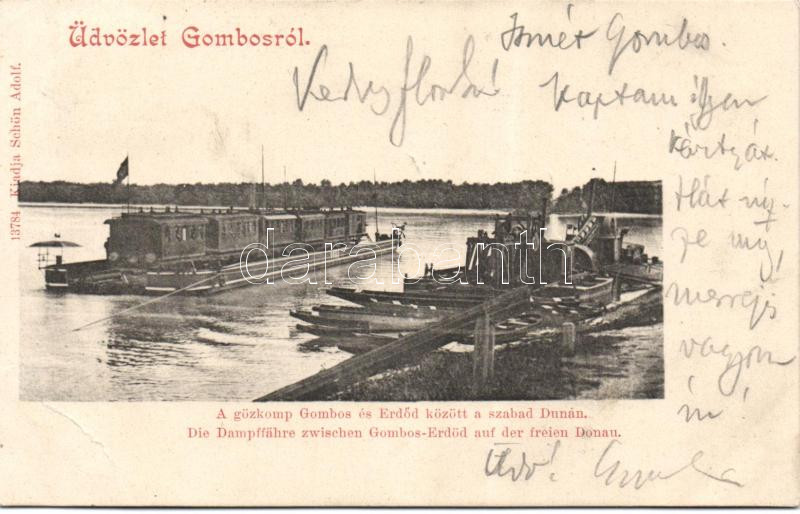 Üdvözlet Gombosról.
Ismét Gombos.
Kedves
Kaptam ilyen
kártyát.
Hát
merre is
vagyom
én!
13784 Kiadja Schön Adolf.
darabanth
A gözkomp Gombos és Erdőd között a szabad Dunán.
Die Dampffähre zwischen Gombos-Erdöd auf der freien Donau.
Üdv!